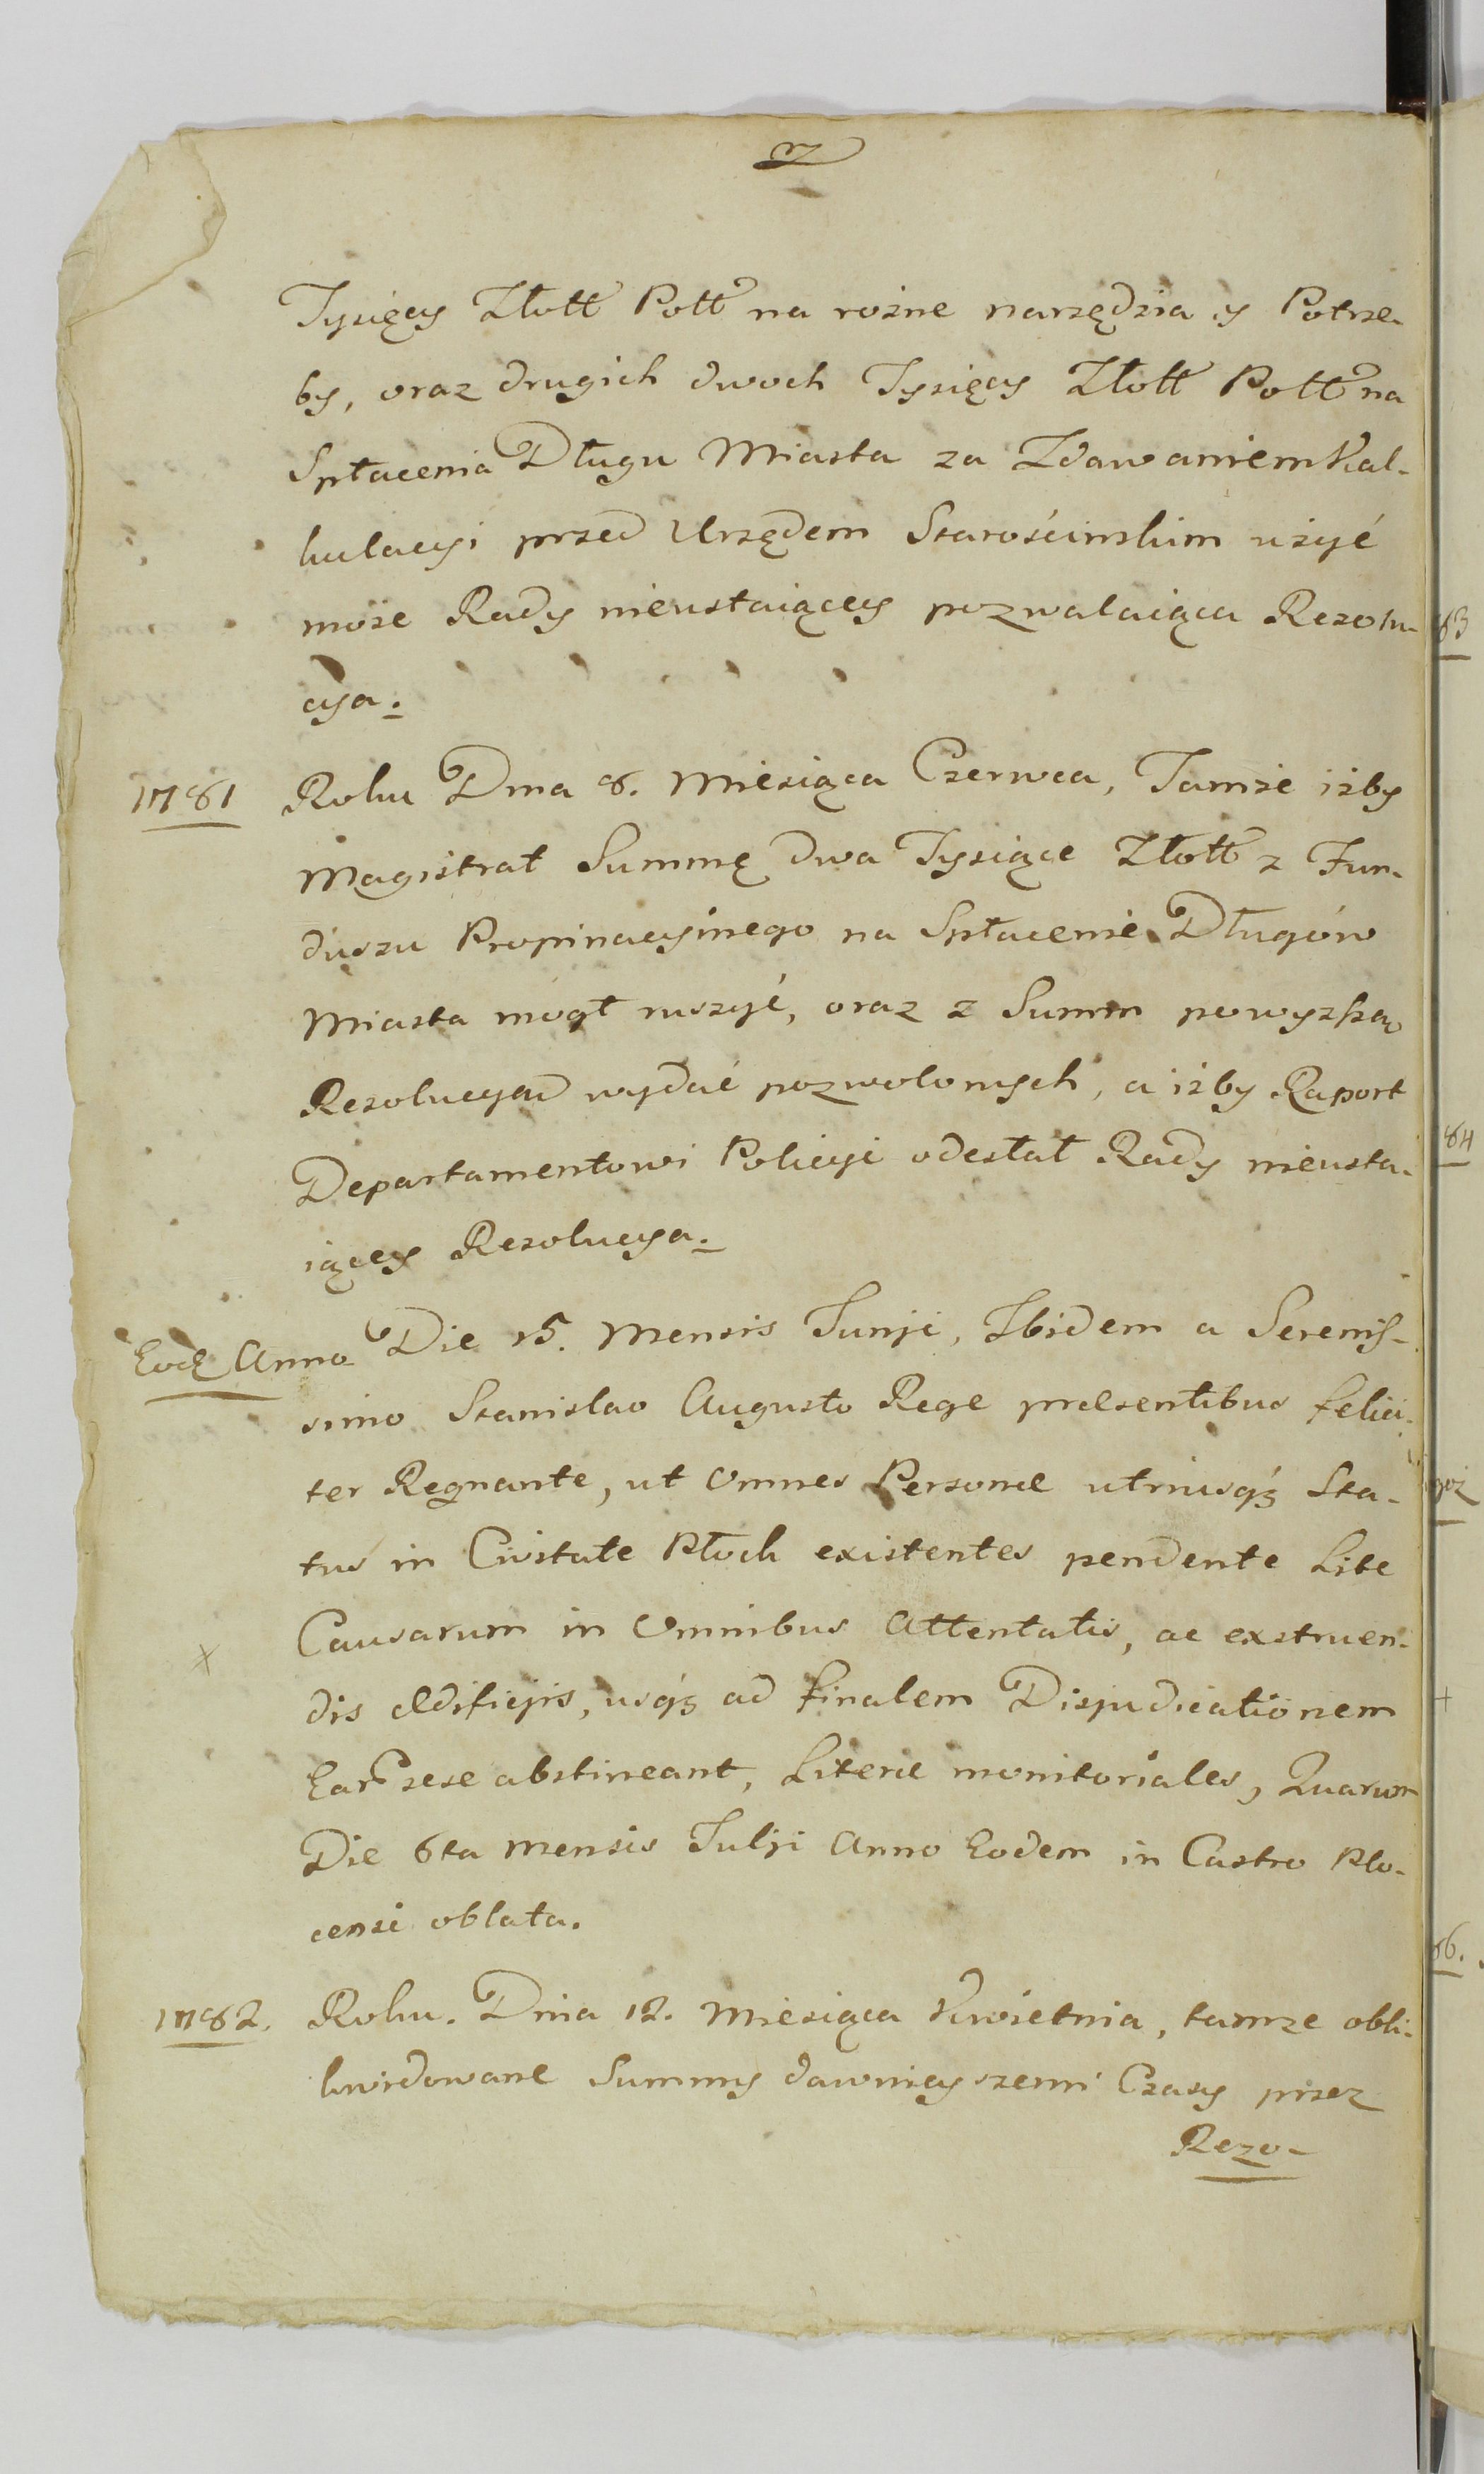 Tysięcy Złott Poll na rożne narzędzia y Potrze-
by, oraz drugich dwoch Tysięcy Złott Poll na
Spłacenia Długu Miasta za Zdawaniem Kal-
kulacyi przed Urzędem Starościnskim użyć
może Rady nieustaiącey pozwalaiąca Rezolu-
cya.
1781 Roku Dnia 8. Miesiąca Czerwca, Tamże iżby
Magistrat Summę dwa Tysiące Złott z Fun-
duszu Propinacyinego na Spłacenie Długów
Miasta mógł ruszyć, oraz z Summ powyższą
Rezolucyą wydać pozwolonych, a iżby Raport
Departamentowi Policyi odesłał Rady nieusta-
iącey Rezolucya.
Eod Anno Die 15. Mensis Junji, Ibidem a Serenis-
simo Stanislao Augusto Rege præsentibus felici-
ter Regnante, ut Omnes Personæ utriusq3 Sta-
tus in Civitate Płock existentes pendente Lite
Causarum in Omnibus Attentatis, ac exstruen-
dis Ædificijs, usq3 ad finalem Disjudicationem
Ear sese abstineant, Literæ monitoriales, Quarum
Die 6ta Mensis Julji Anno Eodem in Castro Plo-
censi oblata.
1782. Roku. Dnia 12. Miesiąca Kwietnia, tamze obli-
kwidowane Summy dawnieyszemi Czasy przez
Rezo-